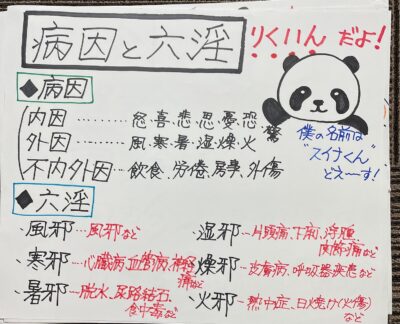 病因と六淫
りくいん だよ!
◆病因
内因……怒.喜.悲.忍.憂.恐.驚
外因……風.寒.暑.湿.燥.火
不内外因……飲食、労倦、房事、外傷
僕の名前は
"スイナくん"
どえーす!
◆六淫
・風邪……風邪など
・寒邪…心臓病、血管病、神経
痛など
・暑邪…脱水、尿路結石、
食中毒など
・湿邪…片頭痛、下痢、浮腫
関節痛など
・燥邪…皮膚病、呼吸器疾患など
・火邪…熱中症、日焼け(火傷)
など